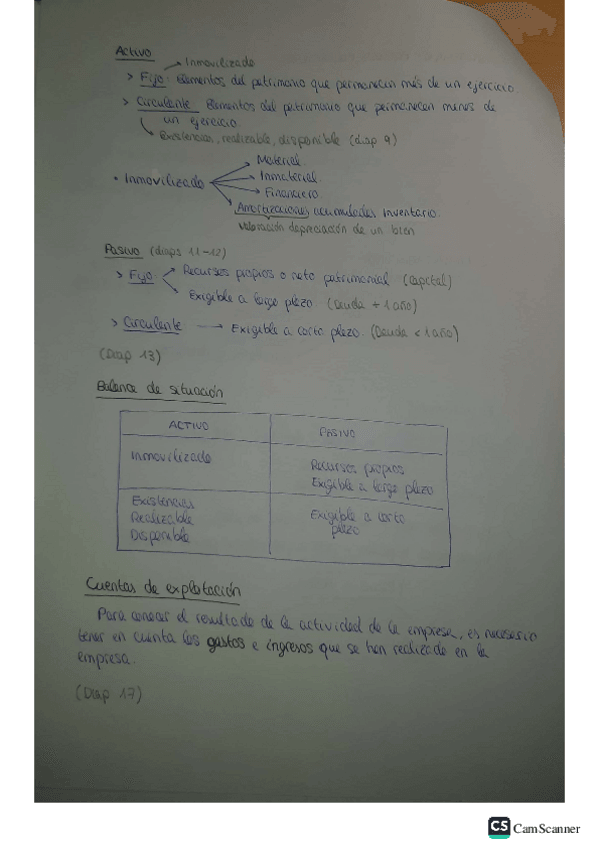 Activo
→ Inmovilizado
> Fijo: Elementos del patrimonio que permanecen más de un ejercicio.
> Circulante Elementos del patrimonio que permanecen menos de
un ejercicio
Existencias, realizable, disponible (diap 9)
Material
• Inmovilizado
Inmaterial
Financiero
Amortizaciones acumuladas inventario.
valoración depreciación de un bien
Pasivo (diaps 11-12)
> Fijo
Recursos propios o neto patrimonial (capital)
Exigible a largo plazo (Deuda + 1 año)
> Circulante → Exigible a corto plazo. (Deuda < 1 año)
(Diap 13)
Balance de situación
ACTIVO
PASIVO
Inmovilizado
Recursos propios
Exigible a largo plazo
Existencias
Realizable
Disponible
Exigible a corto
plazo
Cuentas de explotación
Para conocer el resultado de la actividad de la empresa, es necesario
tener en cuenta los gastos e ingresos que se han realizado en la
empresa.
(Diap 17)
CS CamScanner